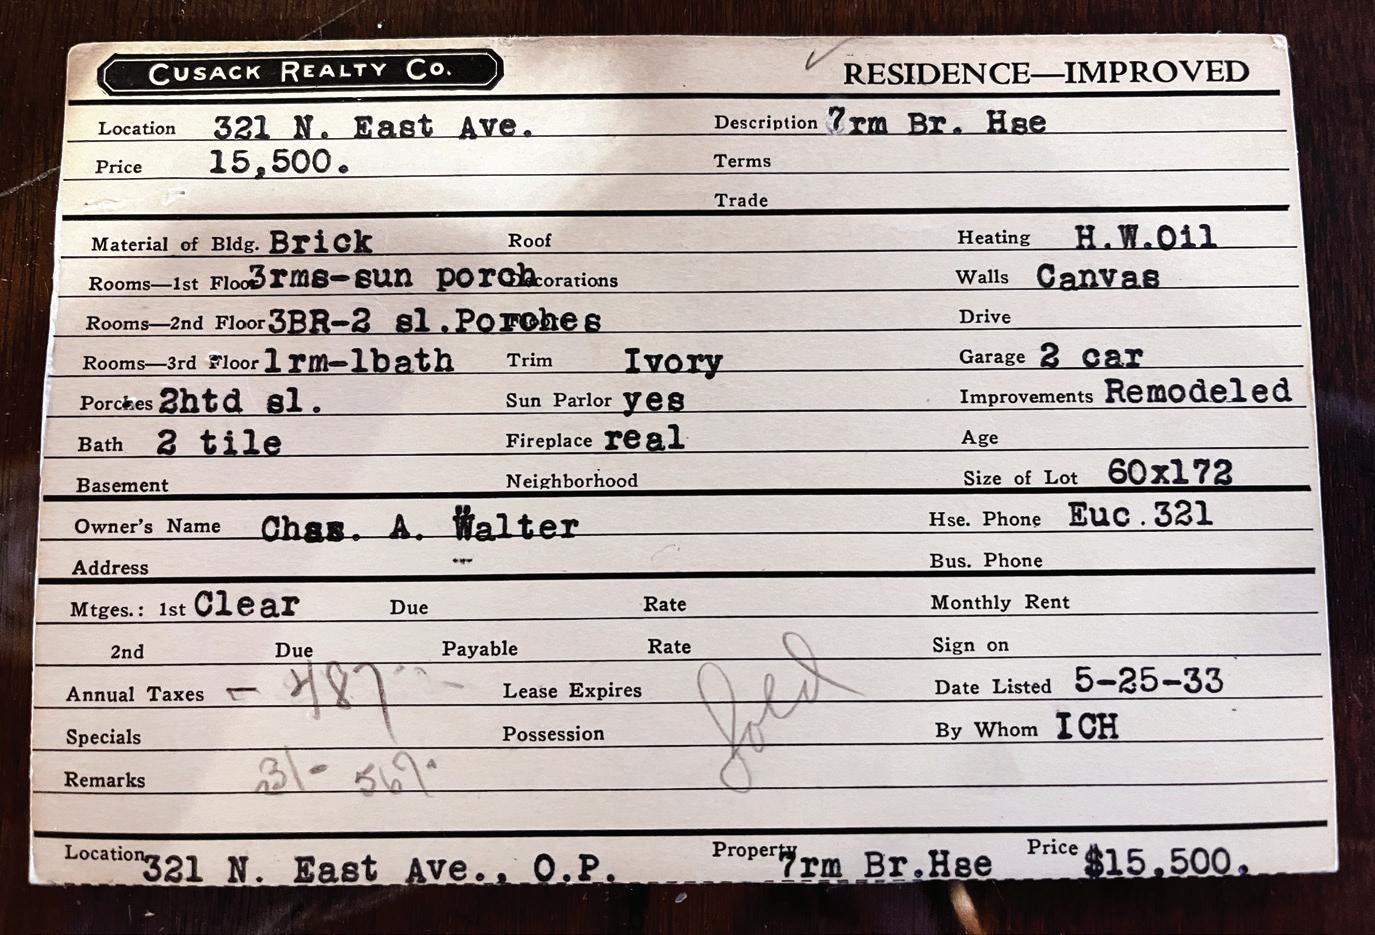 CUSACK REALTY CO. RESIDENCE—IMPROVED
Location 321 N. East Ave. Description 7rm Br. Hse
Price 15,500. Terms
Trade
Material of Bldg. Brick Roof Heating H.W.Oil
Rooms—1st Floor 3rms-sun porch Decorations Walls Canvas
Rooms—2nd Floor 3BR-2 sl.Porches Drive
Rooms—3rd Floor 1rm-1bath Trim Ivory Garage 2 car
Porches 2htd sl. Sun Parlor yes Improvements Remodeled
Bath 2 tile Fireplace real Age
Basement Neighborhood Size of Lot 60x172
Owner's Name Chas. A. Walter Hse. Phone Euc.321
Address Bus. Phone
Mtges.: 1st Clear Due Rate Monthly Rent
2nd Due Payable Rate Sign on
Annual Taxes - 487 Lease Expires Date Listed 5-25-33
Specials Possession Sold By Whom ICH
Remarks 31- 567.
Location 321 N. East Ave., O.P. Property 7rm Br.Hse Price $15,500.